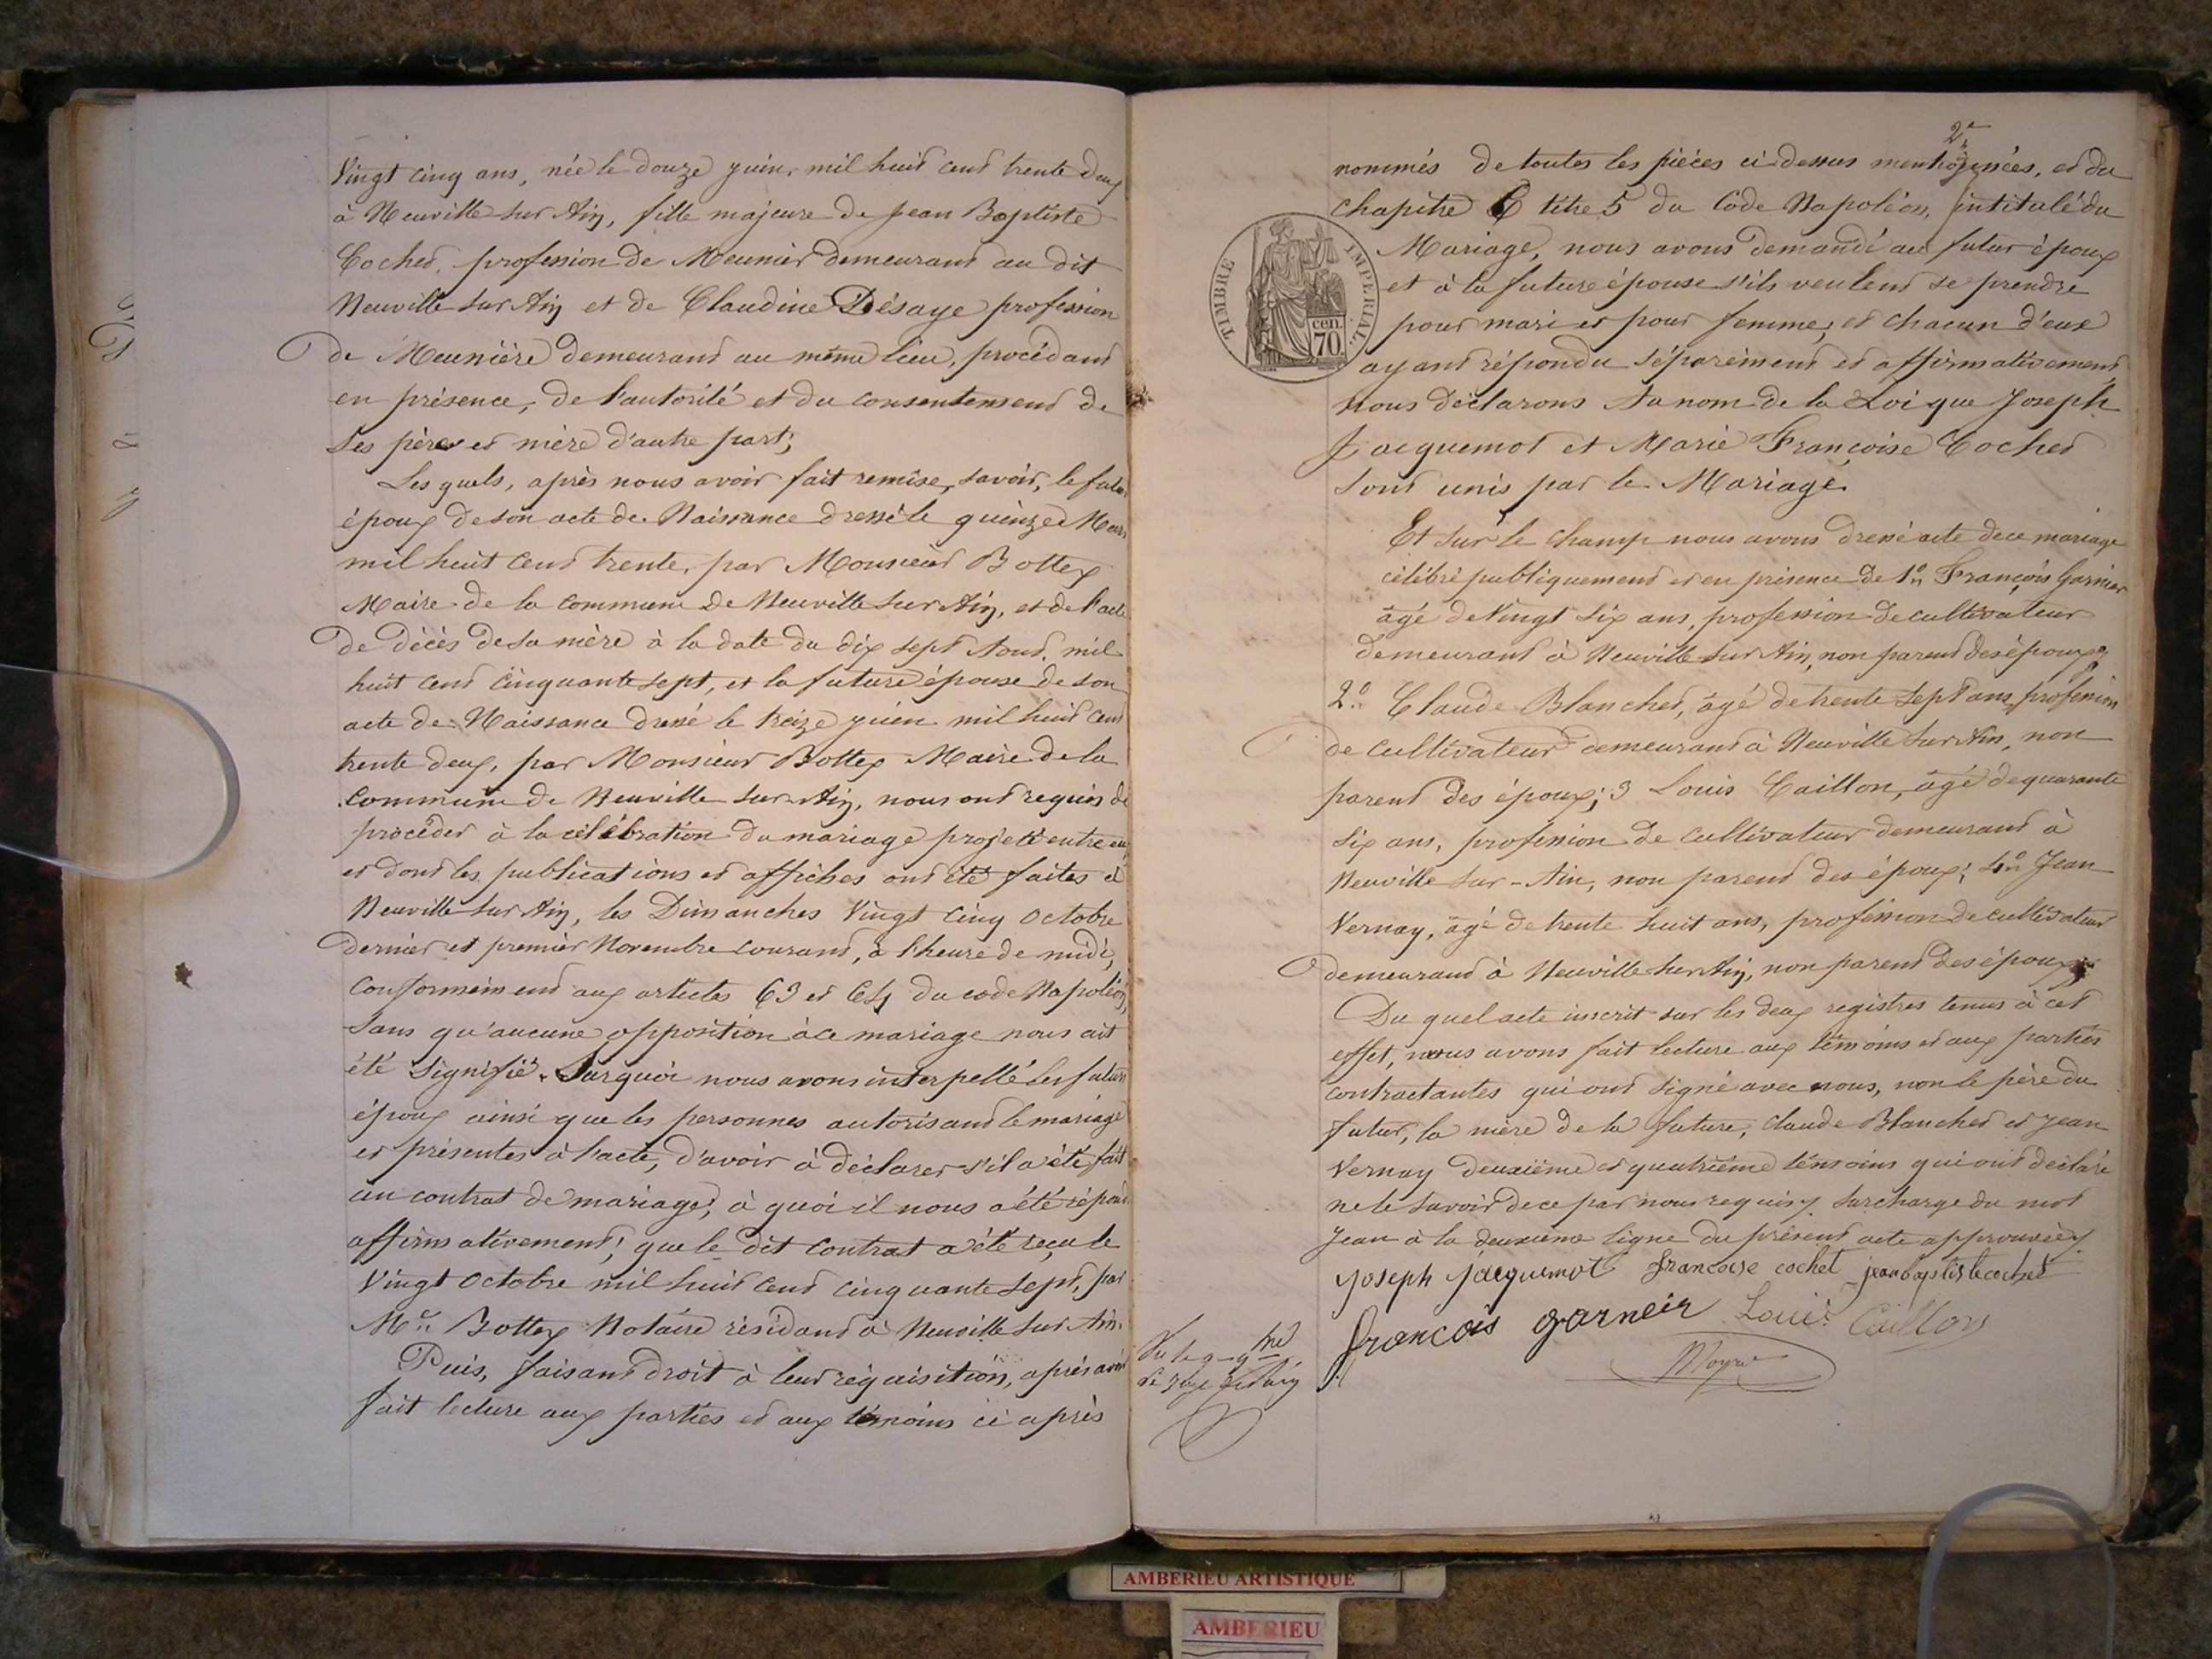 Vingt cinq ans, née le douze juin, mil huit cent trente deux
à Neuville sur Ain, fille majeure de Jean Baptiste
Cochet, profession de Meunier demeurant au dit
Neuville sur Ain et de Claudine Désaye profession
de Meunière demeurant au même lieu, procédant
en présence, de l'autorité et du consentement de
Ses père et mère d'autre part;
Les quels, après nous avoir fait remise, savoir, le futur
époux de son acte de Naissance dressé le quinze Mars
mil huit cent trente, par Monsieur Bottex
Maire de la commune de Neuville sur Ain, et de l'acte
de décès de sa mère à la date du dix sept Aout, mil
huit cent cinquante sept, et la future épouse de son
acte de Naissance dressé le treize juin mil huit cent
trente deux, par Monsieur Bottex Maire de la
commune de Neuville sur Ain, nous ont requis de
procéder à la célébration du mariage projeté entre eux
et dont les publications et affiches ont été faites à
Neuville sur Ain, les Dimanches Vingt cinq Octobre
dernier et premier Novembre courant, à l'heure de midi,
conformément aux articles 63 et 64 du code Napoléon,
Sans qu'aucune opposition à ce mariage nous ait
été Signifié. Surquoi nous avons interpellé les futurs
époux ainsi que les personnes autorisant le mariage
et présentes à l'acte, d'avoir à déclarer s'il a été fait
un contrat de mariage; à quoi il nous a été répondu
affirmativement; que le dit contrat a été reçu le
Vingt Octobre mil huit cent cinquante sept, par
Me Bottex Notaire résidant à Neuville sur Ain.
Puis, faisant droit à leur réquisition, après avoir
fait lecture aux parties et aux témoins ci après
2e
nommés de toutes les pièces ci dessus mentionnées, et du
chapitre 6 titre 5 du Code Napoléon, intitulé du
Mariage, nous avons demandé au futur époux
et à la future épouse s'ils veulent se prendre
pour mari et pour femme; et chacun d'eux
ayant répondu séparément et affirmativement,
nous déclarons Au nom de la Loi que Joseph
Jacquemot et Marie Françoise Cochet
sont unis par le Mariage.
TIMBRE IMPERIAL.
cen.
70.
Et sur le champ nous avons dressé acte de ce mariage
célébré publiquement et en présence de 1o François Garnier
âgé de Vingt Six ans, profession de cultivateur
demeurant à Neuville sur Ain, non parent des époux;
2o Claude Blanchet, âgé de trente Sept ans, profession
de cultivateur demeurant à Neuville sur Ain, non
parent des époux; 3 Louis Caillon, âgé de quarante
Six ans, profession de cultivateur demeurant à
Neuville sur-Ain, non parent des époux; 4o Jean
Vernay, âgé de trente huit ans, profession de cultivateur
demeurant à Neuville sur Ain, non parent des époux
Du quel acte inscrit sur les deux registres tenus à cet
effet, nous avons fait lecture aux témoins et aux parties
contractantes qui ont signé avec nous, non le père du
futur, la mère de la future, Claude Blanchet et Jean
Vernay deuxième et quatrième témoins qui ont déclaré
ne le savoir de ce par nous requis. Surcharge du mot
Jean à la deuxième ligne du présent acte approuvée
Joseph jacquemot francoise cochet jean baptiste cochet
francois garneir Louis Caillon
AMBERIEU ARTISTIQUE
AMBERIEU